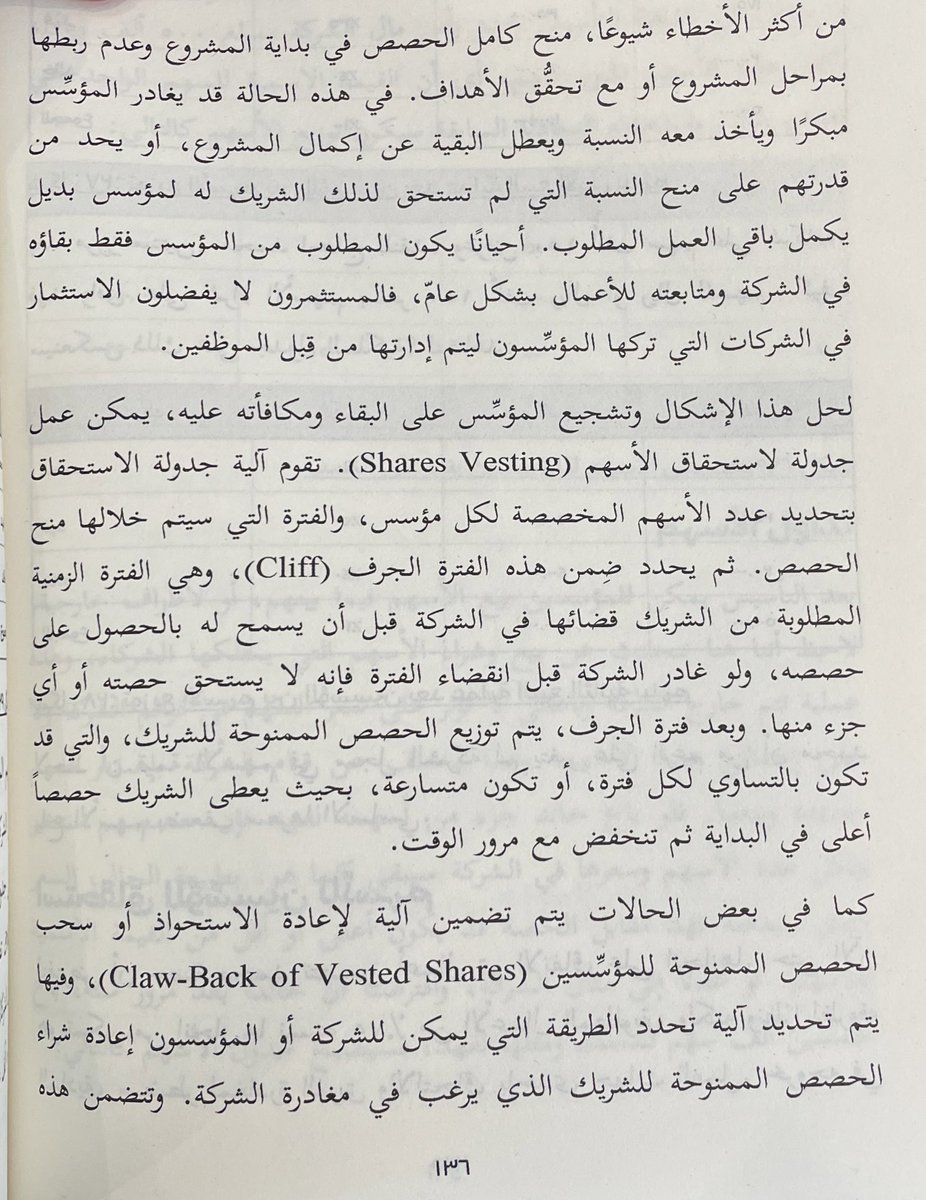 من أكثر الأخطاء شيوعًا، منح كامل الحصص في بداية المشروع وعدم ربطها
بمراحل المشروع أو مع تحقُّق الأهداف. في هذه الحالة قد يغادر المؤسِّس
مبكرًا ويأخذ معه النسبة ويعطل البقية عن إكمال المشروع، أو يحد من
قدرتهم على منح النسبة التي لم تستحق لذلك الشريك له لمؤسس بديل
يكمل باقي العمل المطلوب. أحيانًا يكون المطلوب من المؤسس فقط بقاؤه
في الشركة ومتابعته للأعمال بشكل عامّ، فالمستثمرون لا يفضلون الاستثمار
في الشركات التي تركها المؤسِّسون ليتم إدارتها من قِبل الموظفين.
لحل هذا الإشكال وتشجيع المؤسِّس على البقاء ومكافأته عليه، يمكن عمل
جدولة لاستحقاق الأسهم (Shares Vesting). تقوم آلية جدولة الاستحقاق
بتحديد عدد الأسهم المخصصة لكل مؤسس، والفترة التي سيتم خلالها منح
الحصص. ثم يحدد ضِمن هذه الفترة الجرف (Cliff)، وهي الفترة الزمنية
المطلوبة من الشريك قضائها في الشركة قبل أن يسمح له بالحصول على
حصصه، ولو غادر الشركة قبل انقضاء الفترة فإنه لا يستحق حصته أو أي
جزء منها. وبعد فترة الجرف، يتم توزيع الحصص الممنوحة للشريك، والتي قد
تكون بالتساوي لكل فترة، أو تكون متسارعة، بحيث يعطى الشريك حصصاً
أعلى في البداية ثم تنخفض مع مرور الوقت.
كما في بعض الحالات يتم تضمين آلية لإعادة الاستحواذ أو سحب
الحصص الممنوحة للمؤسِّسين (Claw-Back of Vested Shares)، وفيها
يتم تحديد آلية تحدد الطريقة التي يمكن للشركة أو المؤسسون إعادة شراء
الحصص الممنوحة للشريك الذي يرغب في مغادرة الشركة. وتتضمن هذه
١٣٦